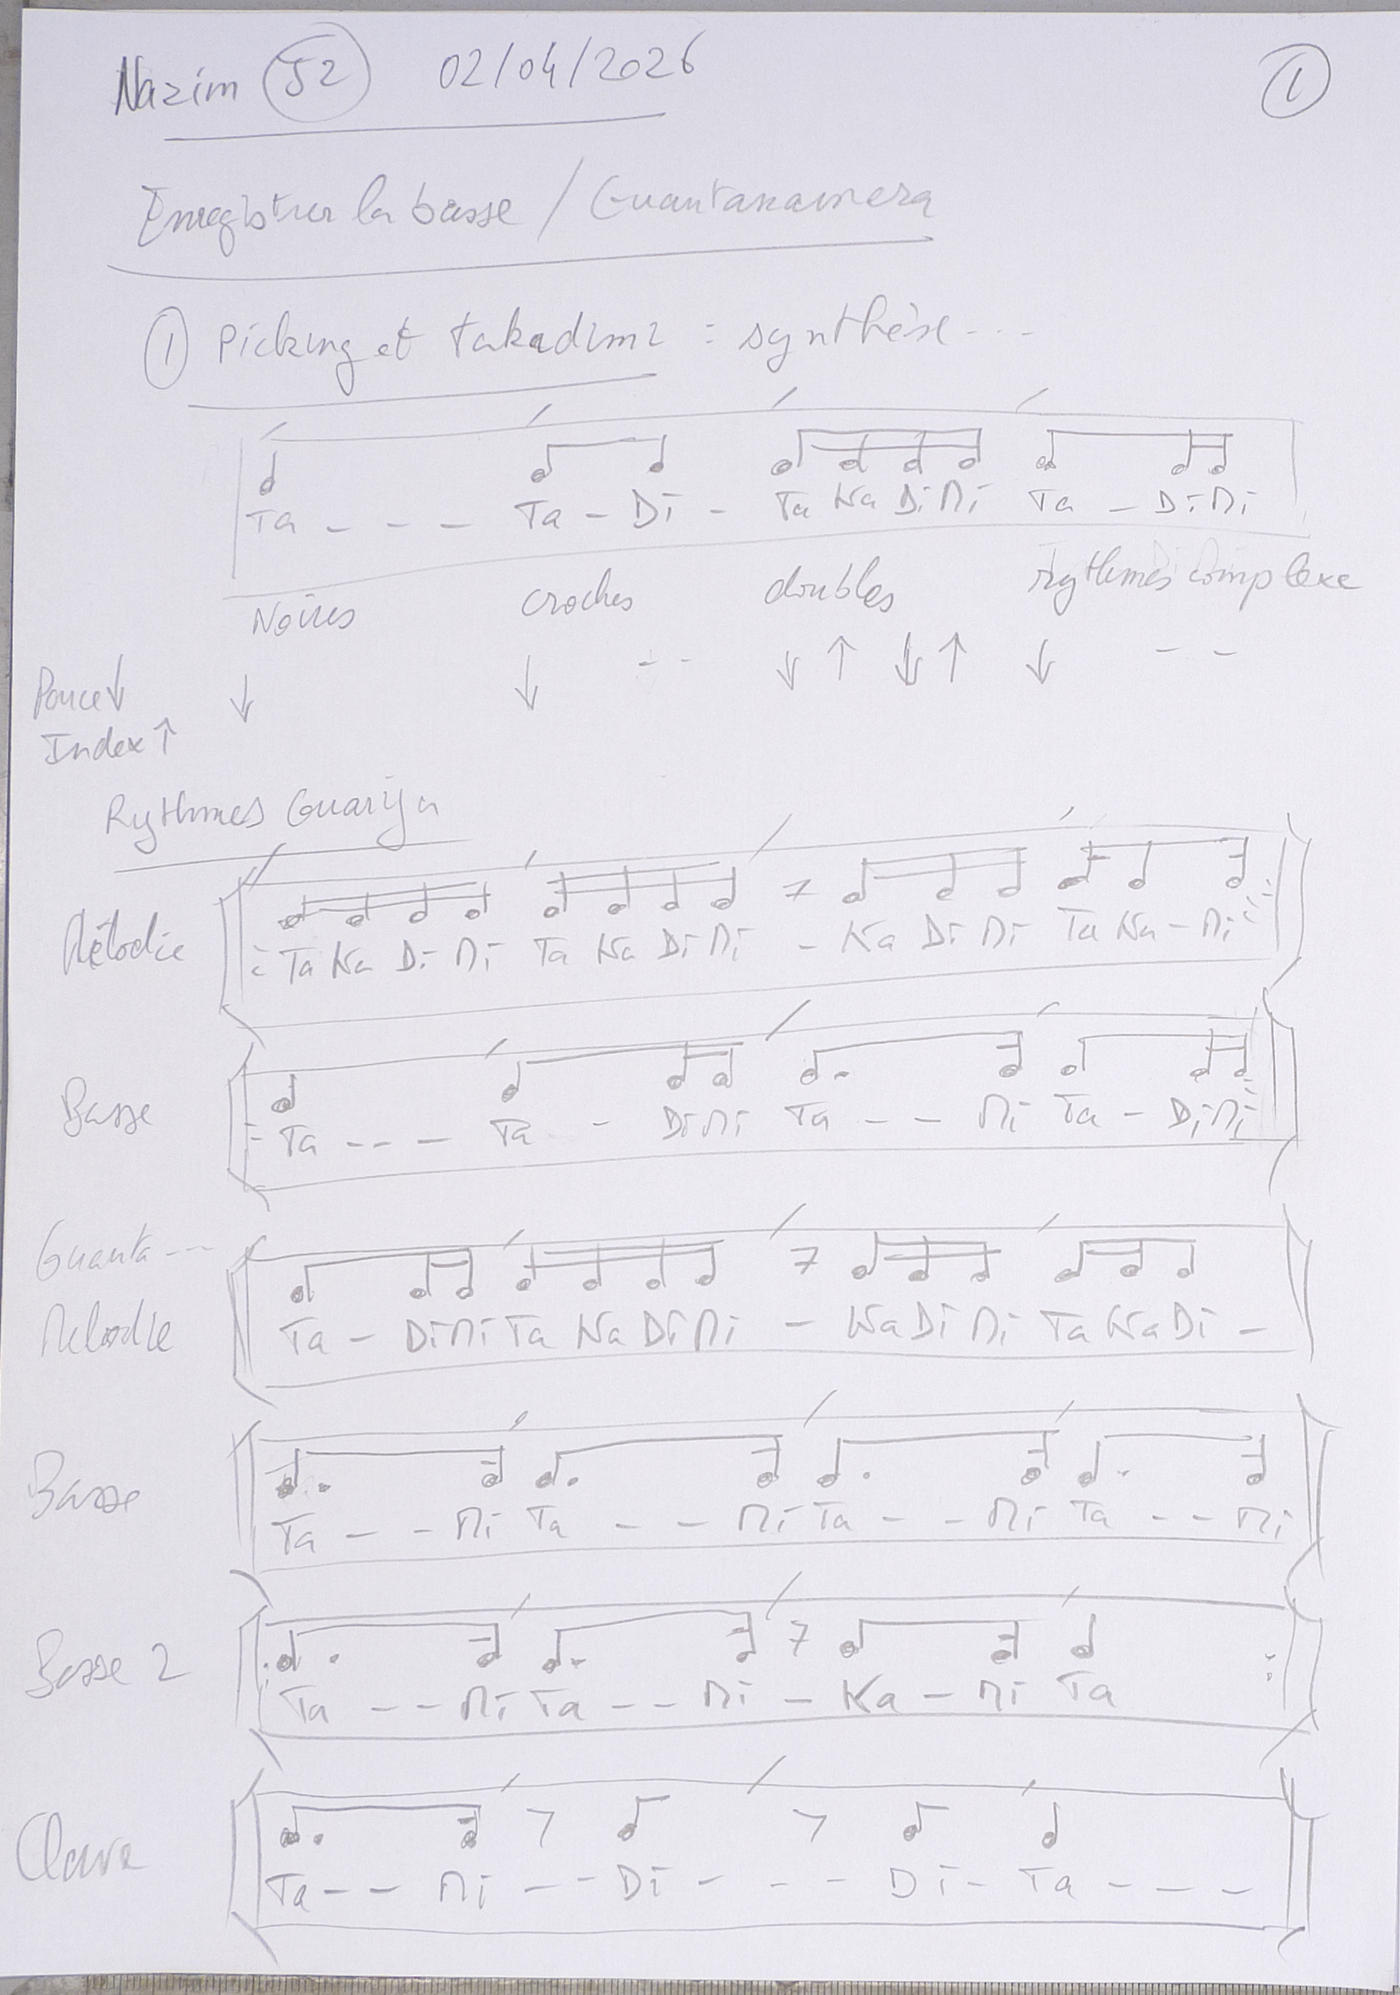 Nazim 52 02/04/2026 1
Enregistrer la basse / Guantanamera
1 Picking et takadimi : synthèse ---
Ta - - - Ta - Di - Ta Ka Di Mi Ta - Di Mi
Noires croches doubles rythmes complexe
Pouce ↓ ↓ ↓ - - ↓ ↑ ↓ ↑ ↓ - -
Index ↑
Rythmes Guarija
Mélodie : Ta Ka Di Mi Ta Ka Di Mi - Ka Di Mi Ta Ka - Mi :
Basse : Ta - - - Ta - Di Mi Ta - - Mi Ta - Di Mi :
Guanta ---
Melodie Ta - Di Mi Ta Ka Di Mi - Ka Di Mi Ta Ka Di -
Basse Ta - - Mi Ta - - Mi Ta - - Mi Ta - - Mi
Basse 2 : Ta - - Mi Ta - - Mi - Ka - Mi Ta :
Clave Ta - - Mi - - Di - - - Di - Ta - - -